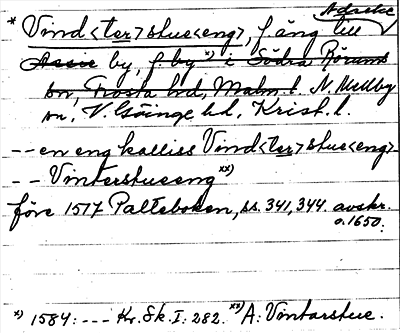 Adseke
* Vind<ter>stue<eng>, f. äng till
Assie by, f. by *) i Södra Rörums
sn, Frosta hd, Malm. l. N. Mellby
sn, V. Göinge hd, Krist. l.
-- en eng kalliss Vind<ter>stue<eng>-
- Vinterstueeng xx)
före 1517 Palteboken, ss. 341, 344. avskr.
o. 1650.
x) 1584: --- Kr. Sk. I: 282. xx) A: Vintarstue.